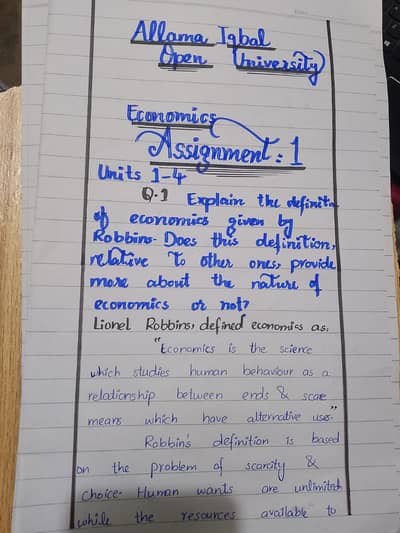 Allama Iqbal
Open University
Economics
Assignment: 1
Units 1-4
Q.1 Explain the definiti
of economics given by
Robbins. Does this definition,
relative to other ones, provide
more about the nature of
economics or not?
Lionel Robbins, defined economics as,
"Economics is the science
which studies human behaviour as a
relationship between ends & scare
means which have alternative uses."
Robbin's definition is based
on the problem of scarcity &
choice. Human wants are unlimited
while the resources available to